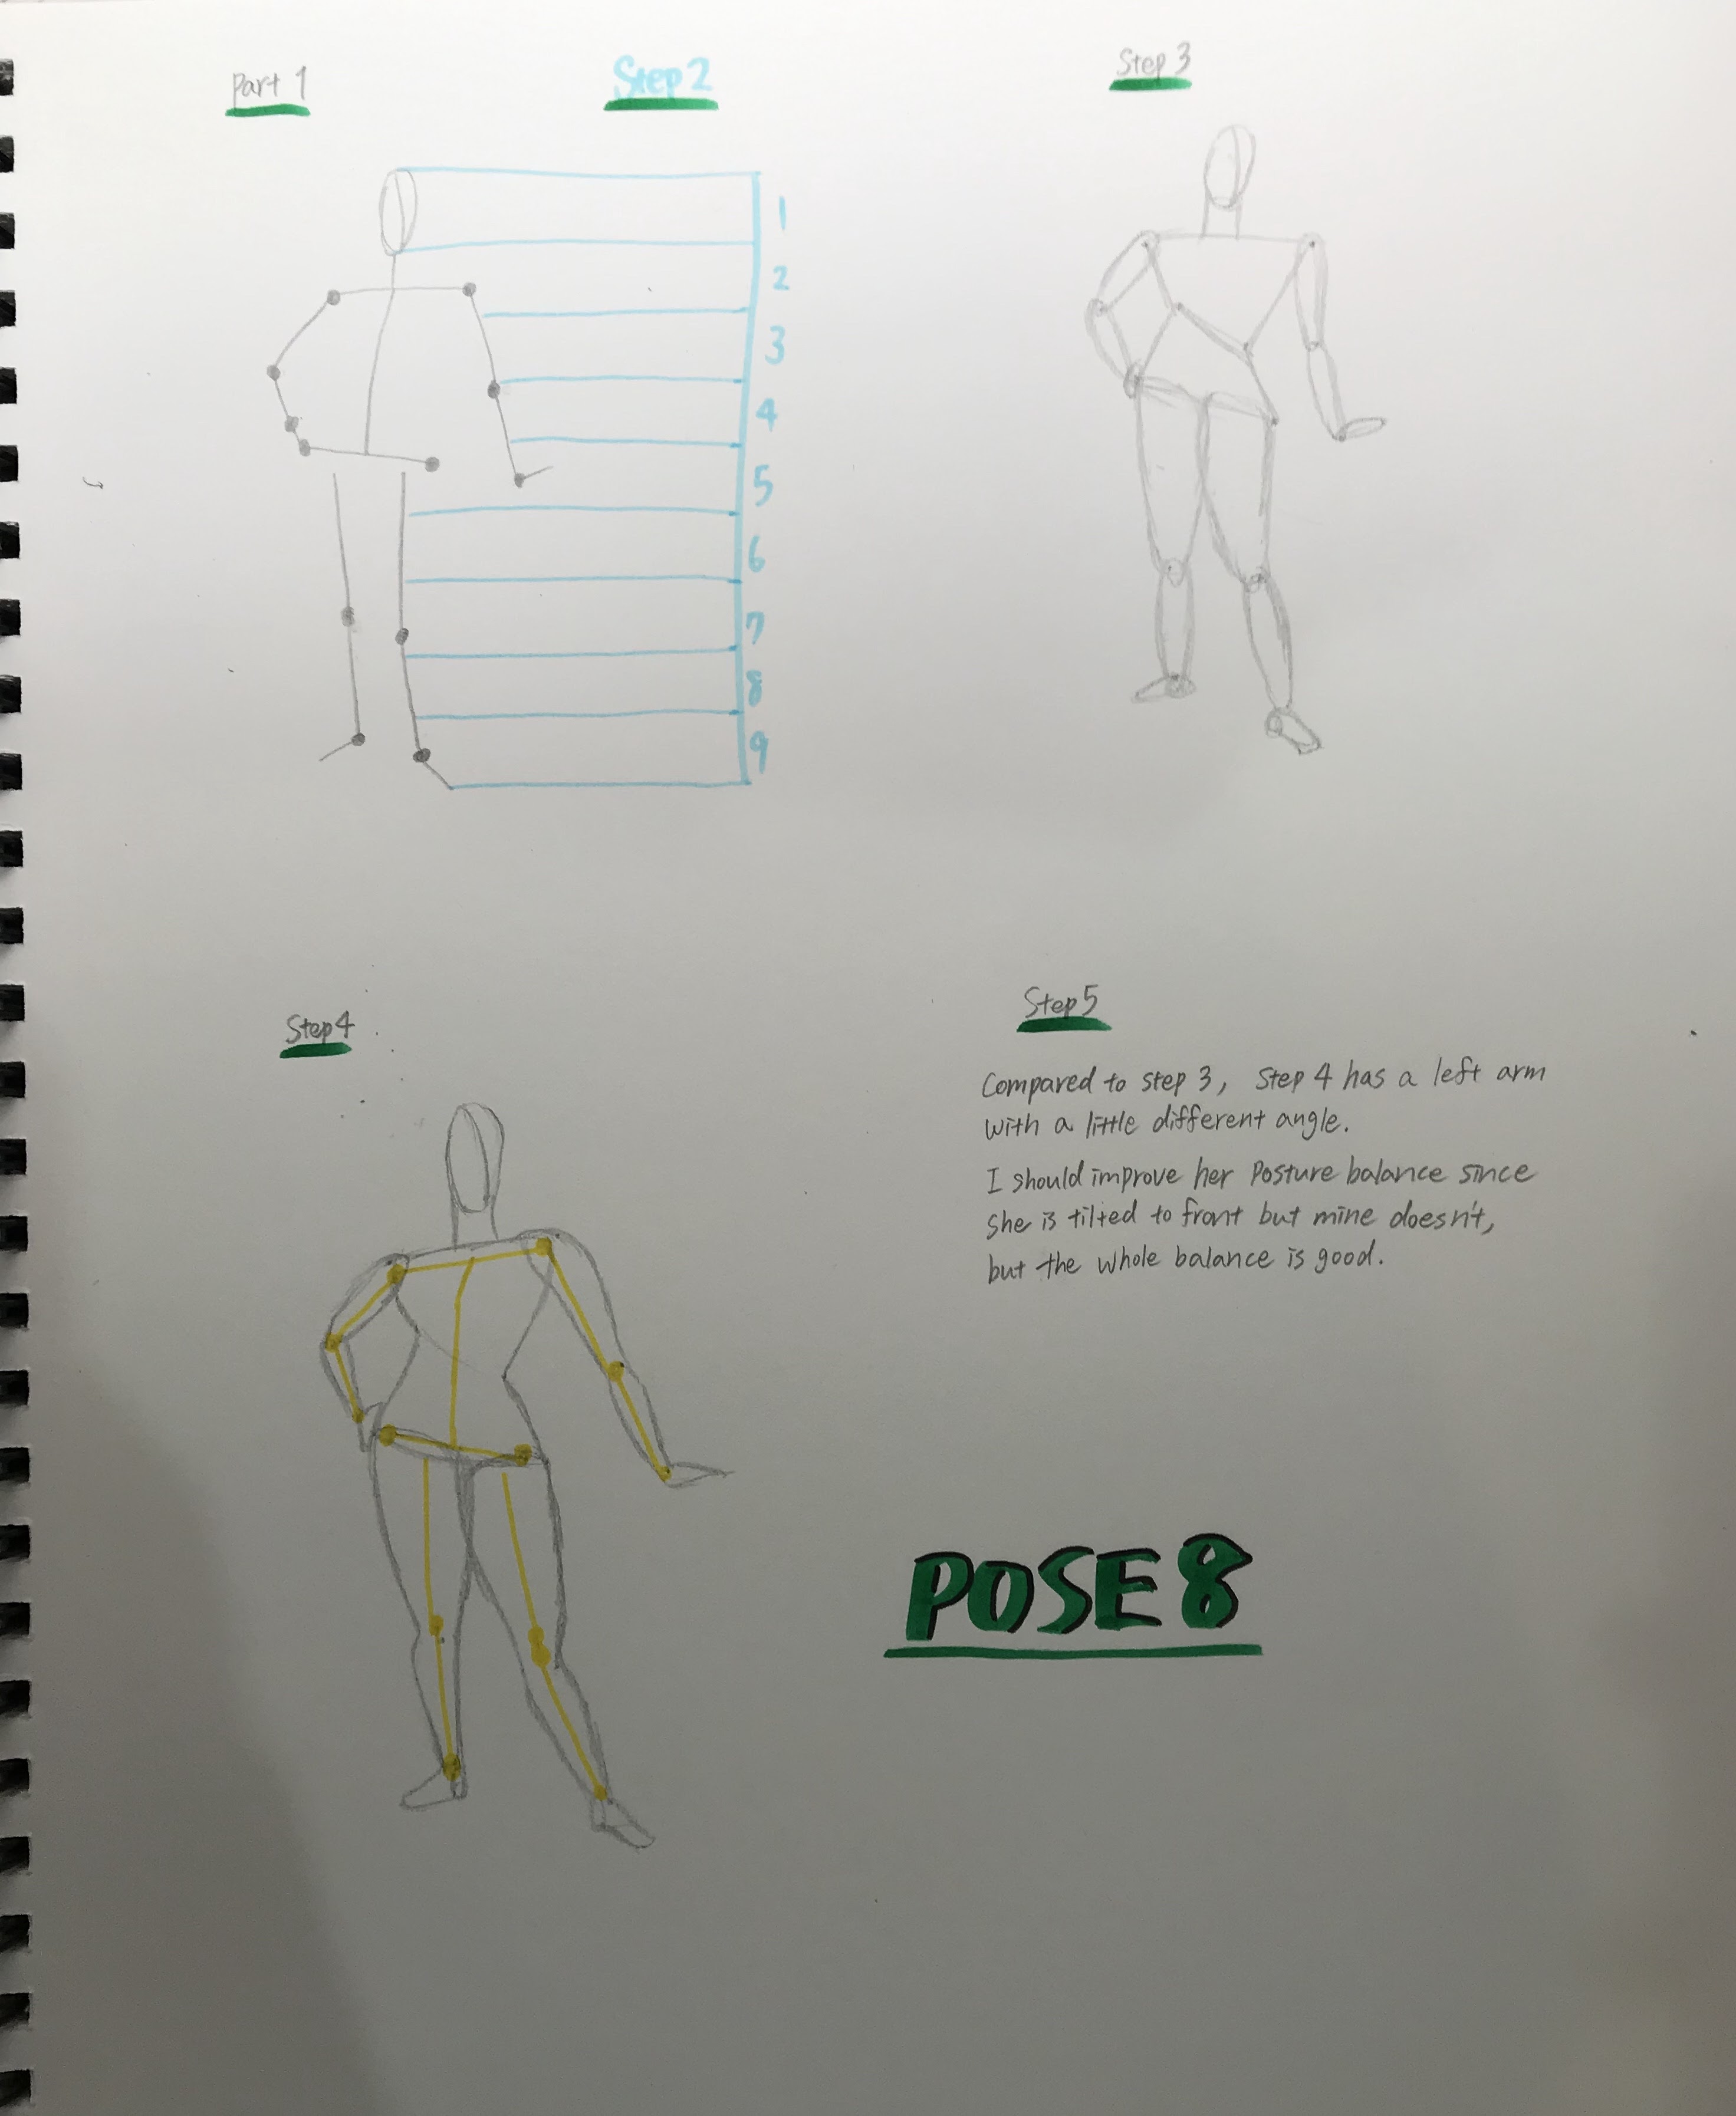 Part 1
Step 2
Step 3
1
2
3
4
5
6
7
8
9
Step 4
Step 5
Compared to step 3, Step 4 has a left arm
with a little different angle.
I should improve her Posture balance since
She is tilted to front but mine doesn't,
but the whole balance is good.
POSE 8